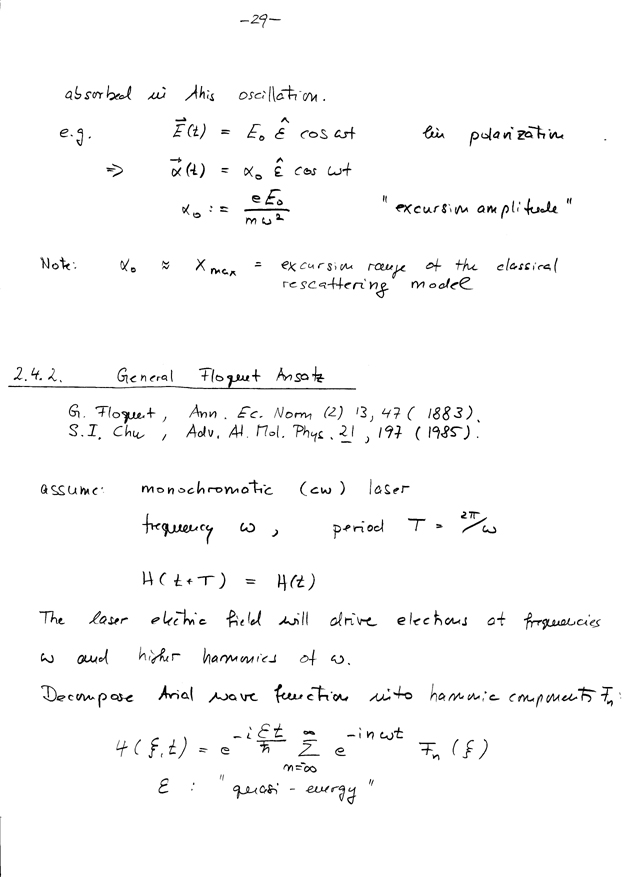 -29-
absorbed in this oscillation.
e.g. E⃗(t) = E₀ ε̂ cos ωt lin polarization .
=> α⃗(t) = α₀ ε̂ cos ωt
α₀ := eE₀ / mω² "excursion amplitude"
Note: α₀ ≈ X_max = excursion range of the classical
rescattering model
2.4.2. General Floquet Ansatz
G. Floquet, Ann. Ec. Norm (2) 13, 47 (1883).
S.I. Chu, Adv. At. Mol. Phys. 21, 197 (1985).
assume: monochromatic (cw) laser
frequency ω, period T = 2π/ω
H(t+T) = H(t)
The laser electric field will drive electrons at frequencies
ω and higher harmonics of ω.
Decompose trial wave function into harmonic components F_n:
Ψ(ξ,t) = e^{-i Ɛt/ħ} Σ_{n=-∞}^{∞} e^{-inωt} F_n(ξ)
Ɛ : "quasi-energy"